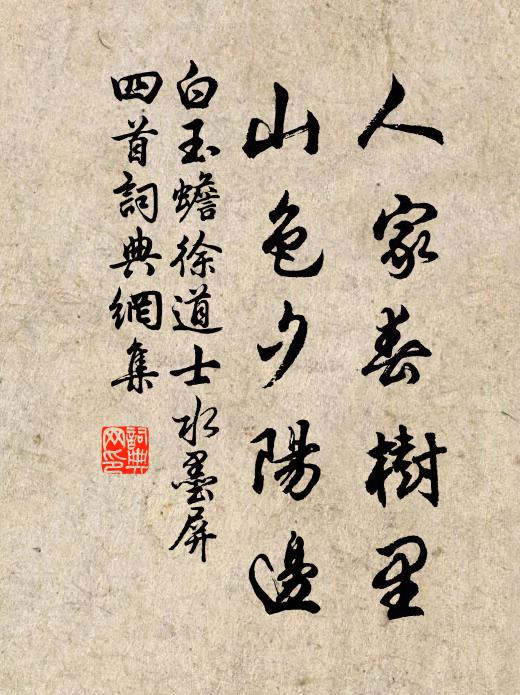 人家春樹里
山色夕陽邊
白玉蟾徐道士水墨屏
四首詞典網集
詞典网印